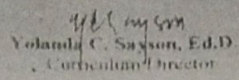 Yolanda C. Sayson, Ed.D.
Curriculum Director